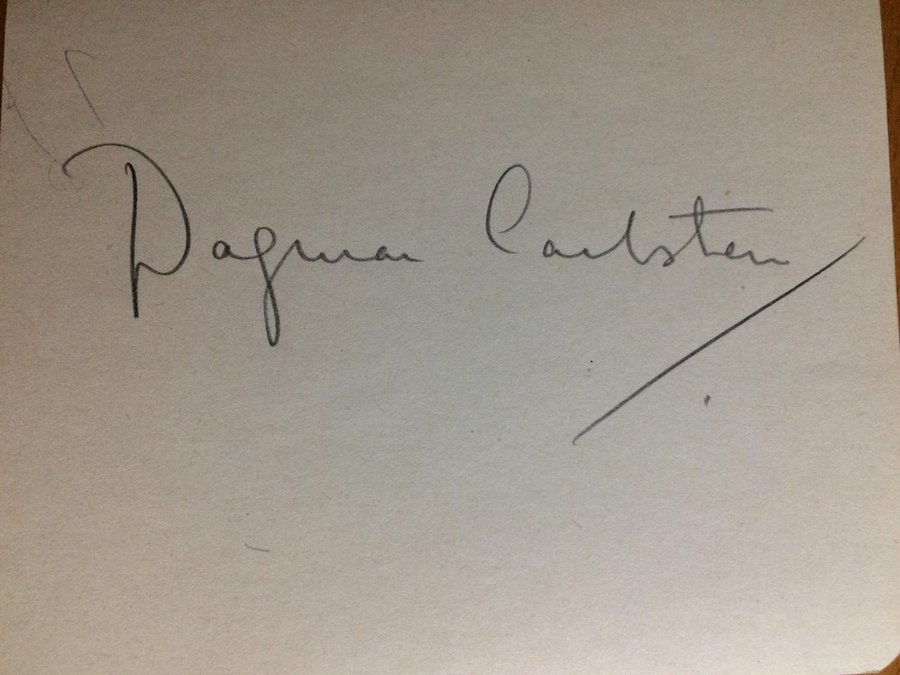 Dagmar Carlsten